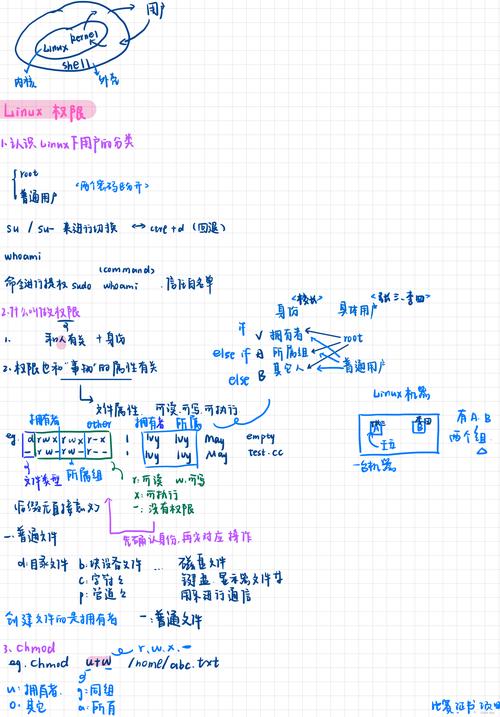 用户
kernel
Linux
shell
内核 外壳
Linux 权限
1.认识 Linux下用户的分类
root
普通用户
<两个密码分开>
su / su- 来进行切换 ↔ ctrl+d (回退)
whoami
(command)
命令进行提权 sudo whoami 信任白名单
2.什么叫做权限
1. 和人有关 + 身份
身份 具体用户 <张三、李四>
if 拥有者 root
else if 所属组
普通用户
else 其它人
2. 权限也和"事物"的属性有关
文件属性: 可读、可写、可执行
Linux 机器
A B
一台机器
有A.B
两个组
拥有者 other 拥有者 所属
eg. d rwx rwx r-x 1 lvy lvy May empty
- rw- rw- r-- 1 lvy lvy May test.cc
文件类型 所属组
r:可读 w:可写
x:可执行
-: 没有权限
先确认身份,再来对应操作
-: 普通文件
d:目录文件 b:块设备文件 ... 磁盘文件
键盘、显示器文件
用来进行通信
创建文件的是拥有者 -:普通文件
3、chmod
r.w.x.-
eg. chmod u+w /home/abc.txt
u: 拥有者 g:同组
o: 其它 a:所有